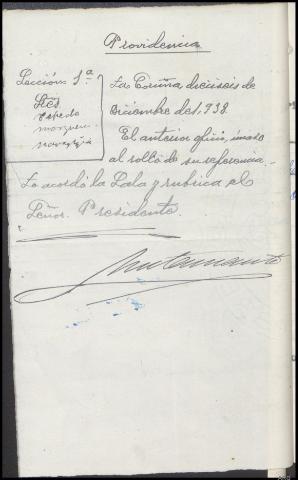 Providencia
Sección 1ª
Sres
La Coruña dieciseis de
Diciembre de 1,938.
El anterior oficio, únase
al rollo de su referencia.
Lo acordó la Sala y rubrica el
Señor Presidente.